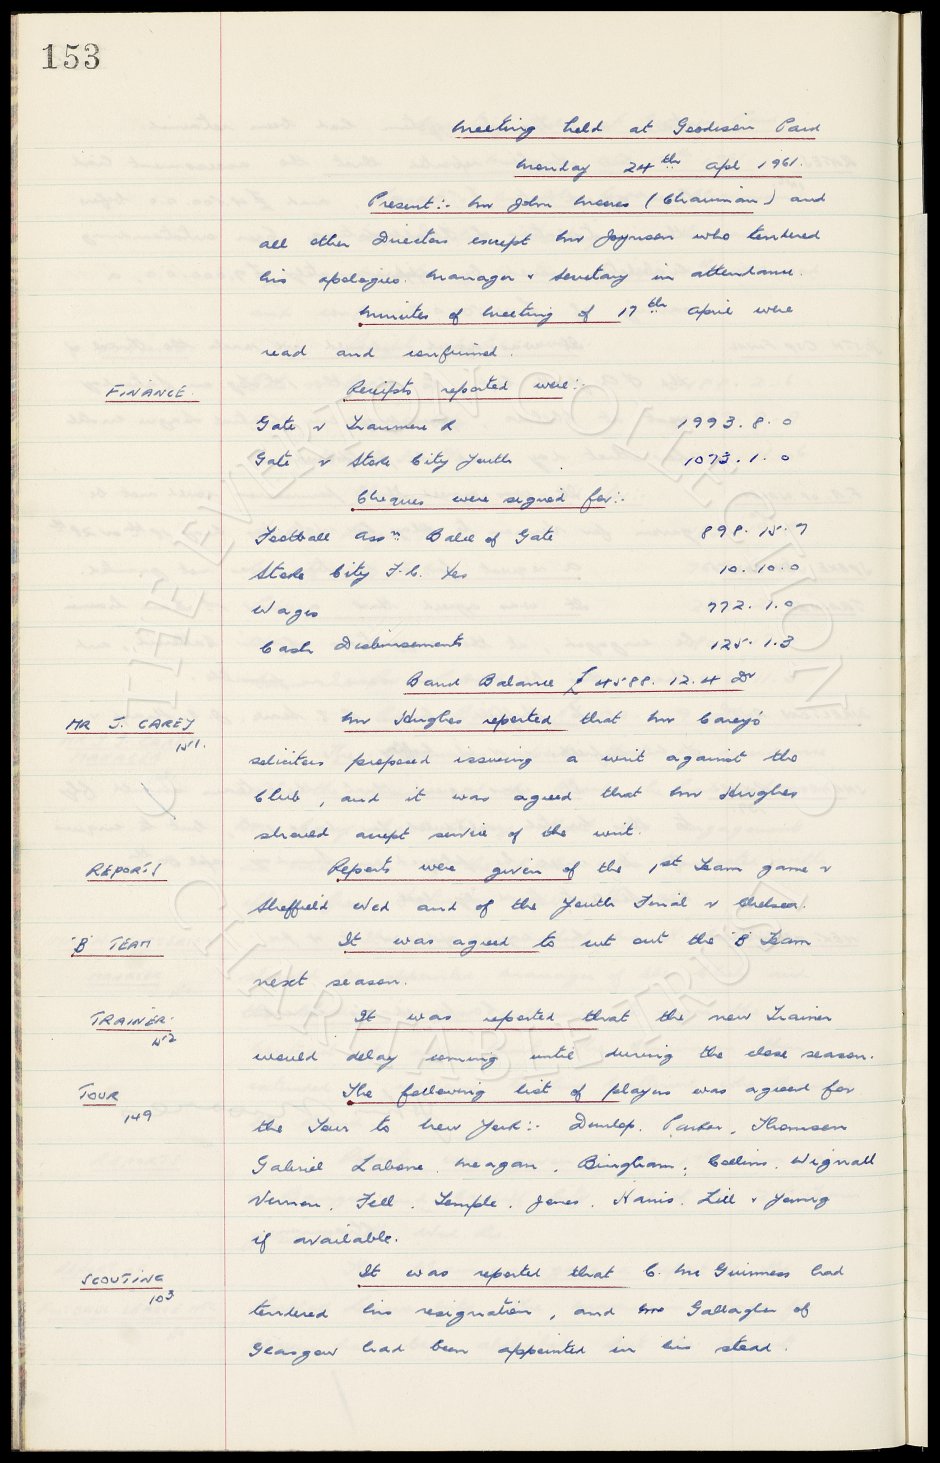 153
Meeting held at Goodison Park
Monday 24th Apl 1961.
Present:- Mr John Moores (Chairman) and
all other Directors except Mr Joynson who tendered
his apologies. Manager & Secretary in attendance.
Minutes of Meeting of 17th April were
read and confirmed.
FINANCE. Receipts reported were:-
Gate v Tranmere R 1993. 8. 0
Gate v Stoke City Youth 1073. 1. 0
Cheques were signed for:-
Football Assn Balce of Gate 898. 15. 7
Stoke City F.C. Exs 10. 10. 0
Wages 772. 1. 0
Cash Disbursements 125. 1. 3
Bank Balance £4588. 12. 4 Dr
MR J. CAREY Mr Hughes reported that Mr Carey's
151. solicitors proposed issuing a writ against the
Club, and it was agreed that Mr Hughes
should accept service of the writ.
REPORTS Reports were given of the 1st Team game v
Sheffield Wed and of the Youth Final v Chelsea.
'B' TEAM It was agreed to cut out the 'B' Team
next season.
TRAINER. It was reported that the new Trainer
152 would delay coming until during the close season.
TOUR The following list of players was agreed for
149 the Tour to New York:- Dunlop. Parker. Thomson
Gabriel Labone. Meagan. Bingham. Collins. Wignall
Vernon. Fell. Temple. Jones. Harris. Lill & Young
if available.
SCOUTING It was reported that C. Mc Guinness had
103 tendered his resignation, and Gallagher of
Glasgow had been appointed in his stead.
THE EVERTON COLLECTION
CHARITABLE TRUST